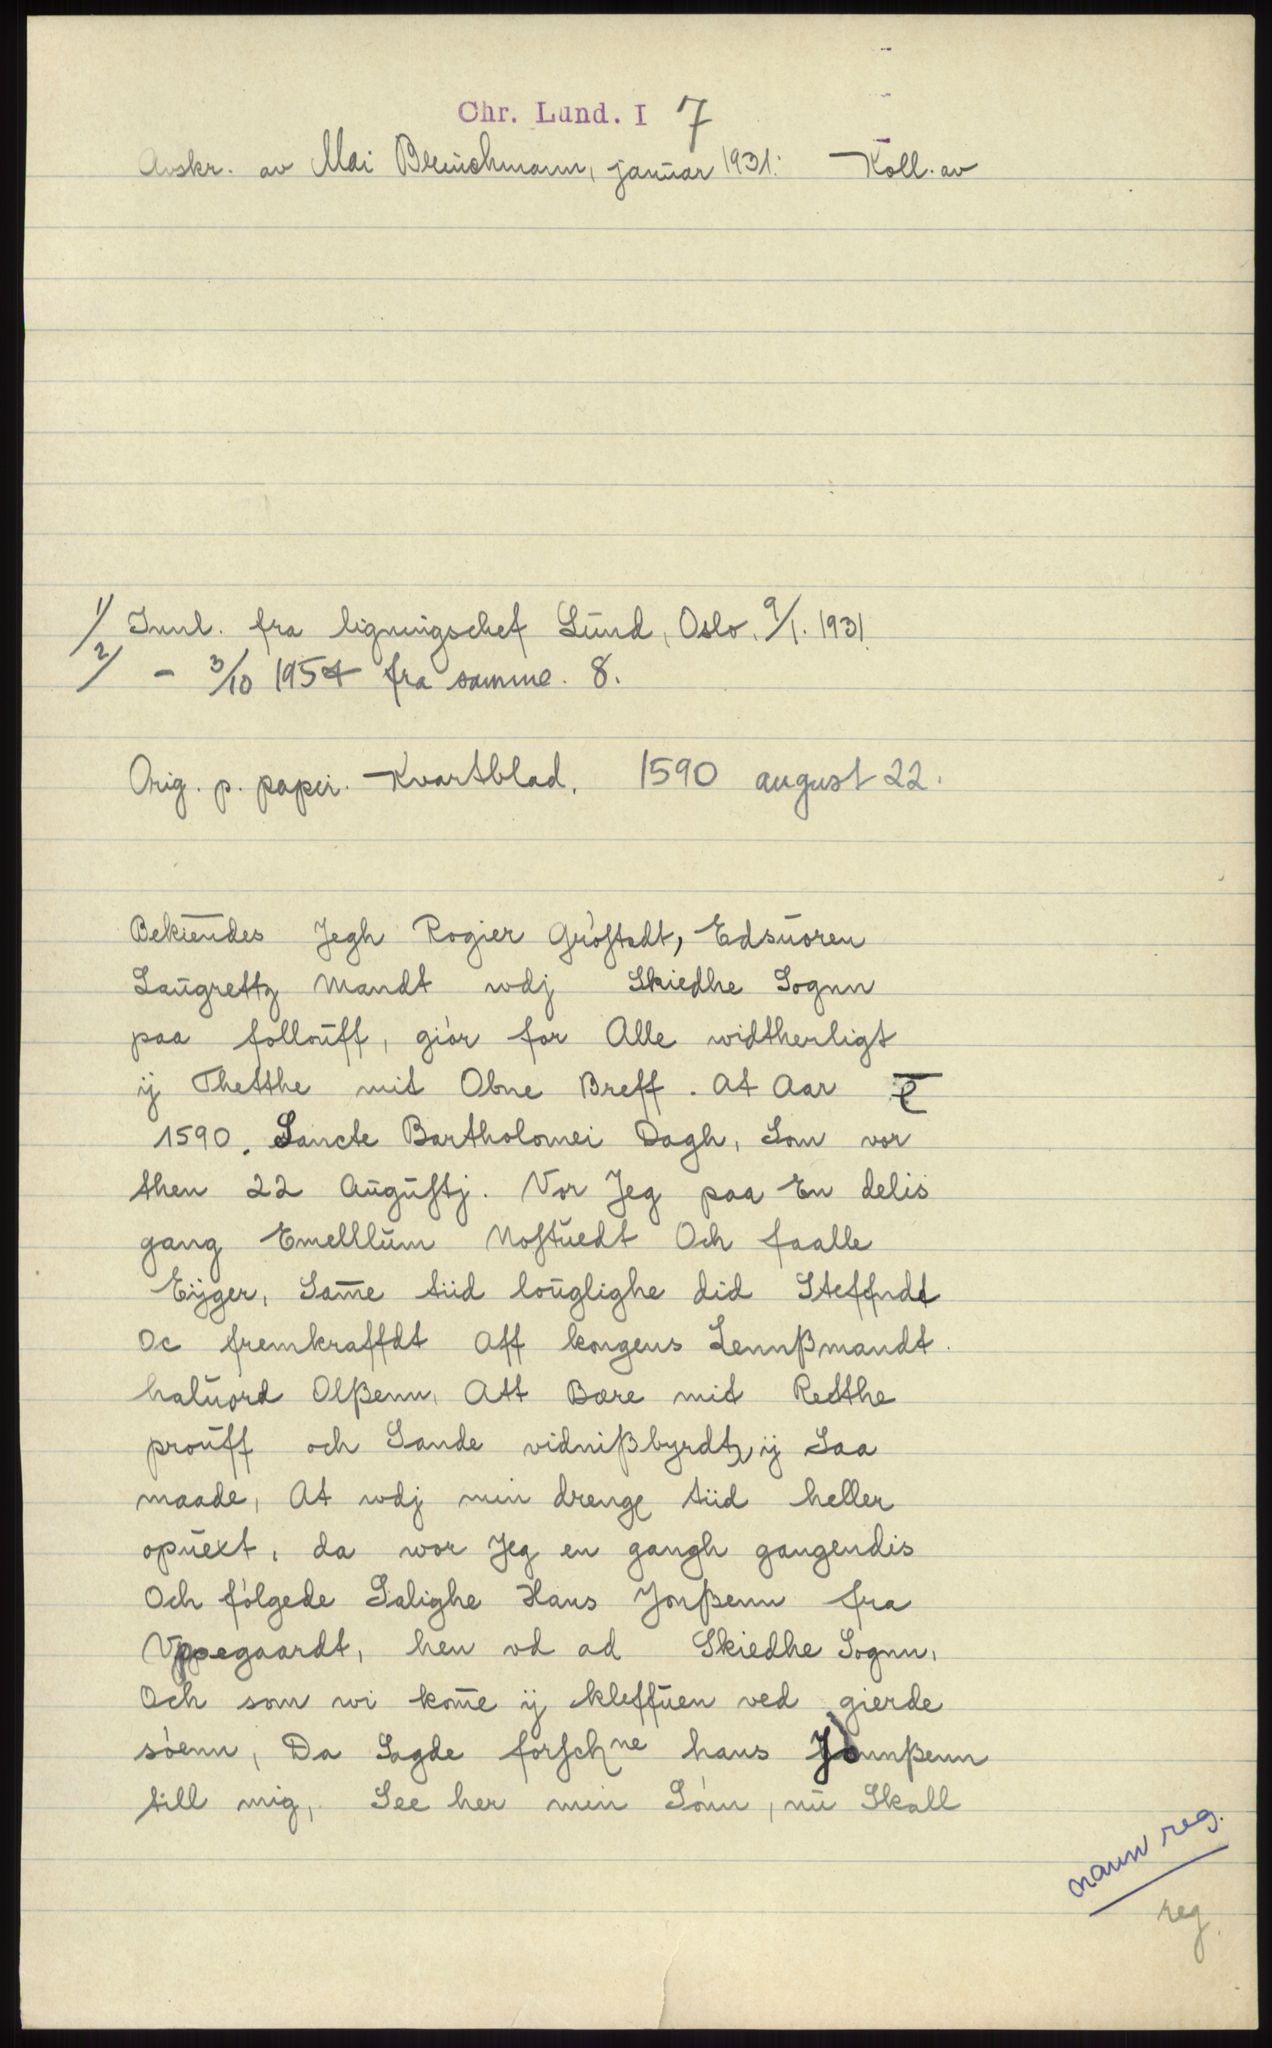 Chr. Lund. I 7
Avskr. av Mai Breuchmann, januar 1931. Koll. av
1/ Innl. fra ligningschef Lund, Oslo, 9/1. 1931
2/ - 3/10 1954 fra samme. 8.
Orig. p. papir. Kvartblad. 1590 august 22.
Bekiendes Jegh Rogier Gróftadt, Edsuoren
Laugrettz Mandt wdj Skiedhe Sognn
paa follouff, giór for Alle widtherligt
ij Thetthe mit Obne Breff. At Aar
1590. Sancte Bartholomei Dagh, Som vor
then 22 Auguftj. Vor Jeg paa En delis
gang Emelllum Noftuedt Och faalle
Eijger, Same tiid louglighe did Steffndt
Oc fremkraffdt Aff kongens Lennßmandt.
haluórd Olßenn, Att Bære mit Retthe
prouff och Sande vidnißbyrdtz ij Saa
maade, At wdj min drenge tiid heller
opuext, da wor Jeg en gangh gangendis
Och fólgede Salighe Hans Jonßenn fra
Vppegaardt, hen vd ad Skiedhe Sognn,
Och som wi kome ij kleffuen ved gierde
sóenn, Da Sagde forschne hans Jonnßenn
till mig, See her min Sónn, nu Skall
navn reg.
reg.